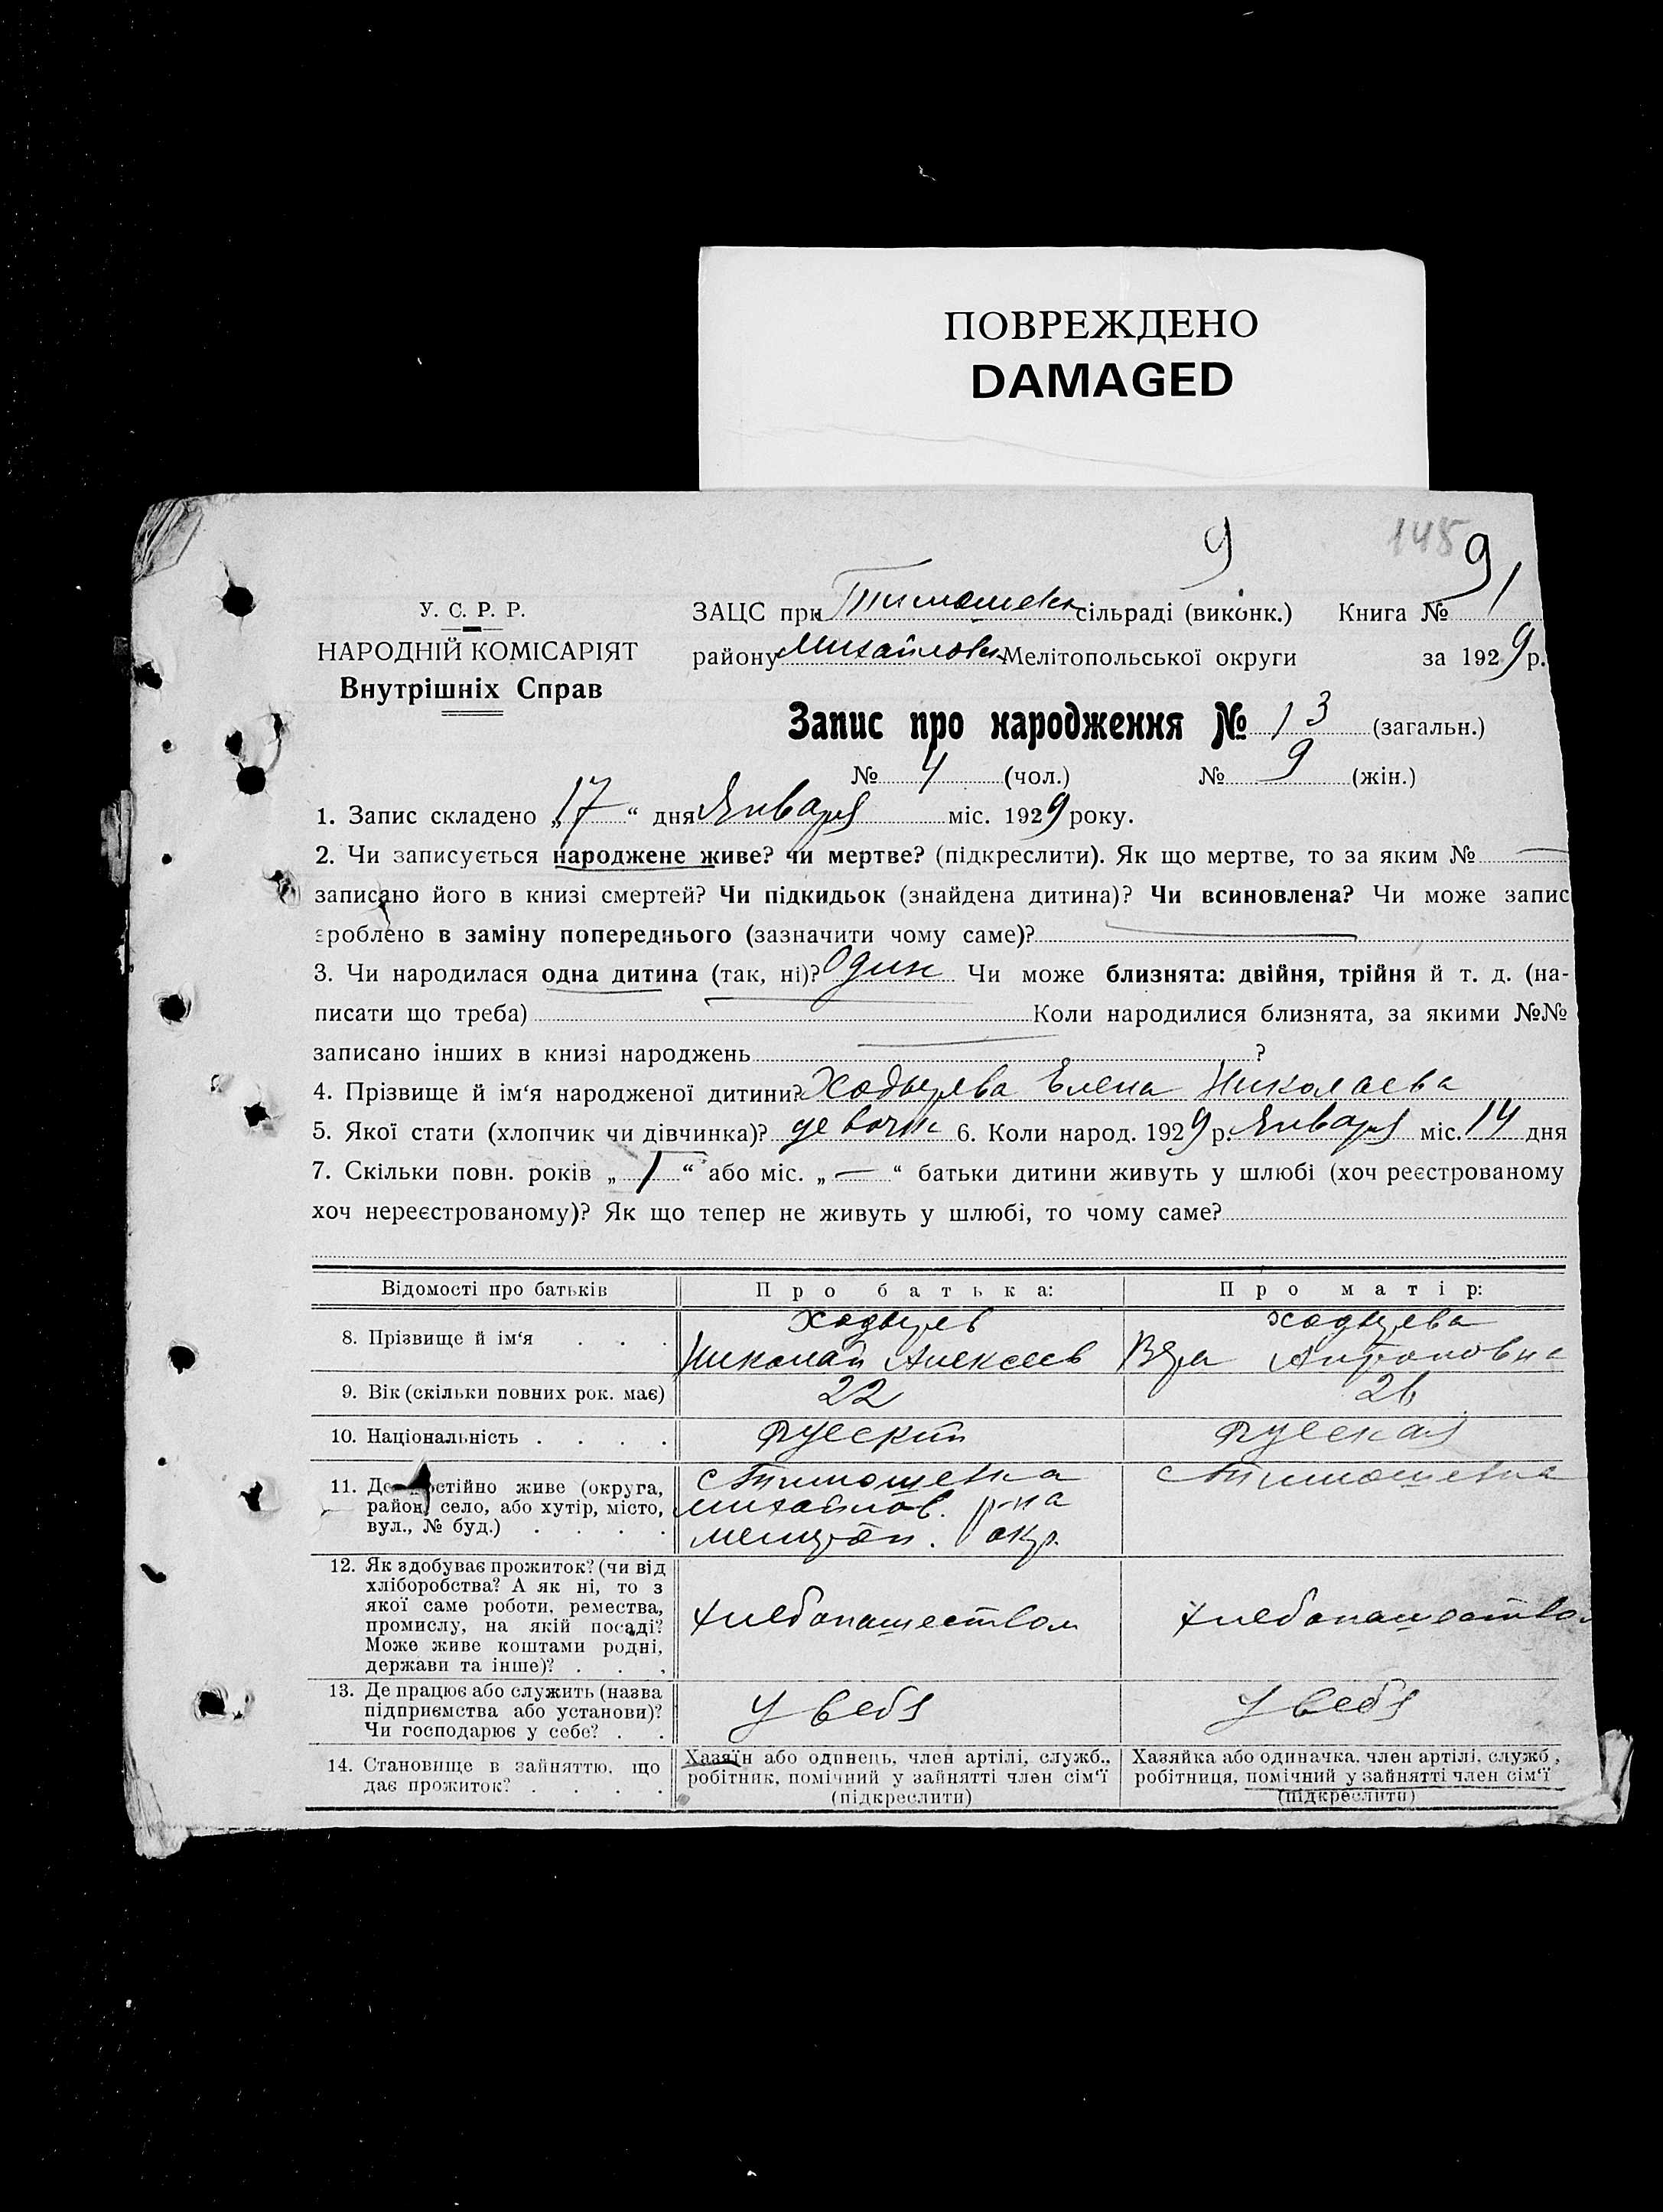 ПОВРЕЖДЕНО
DAMAGED
9
148
9
У. С. Р. Р.
НАРОДНІЙ КОМІСАРІЯТ
Внутрішніх Справ
ЗАЦС при Тимошевк сільраді (виконк.) Книга № 1
району Михайловск Мелітопольської округи за 1929 р.
Запис про народження № 13 (загальн.)
№ 4 (чол.) № 9 (жін.)
1. Запис складено „17“ дня Января міс. 1929 року.
2. Чи записується народжене живе? чи мертве? (підкреслити). Як що мертве, то за яким № —
записано його в книзі смертей? Чи підкидьок (знайдена дитина)? Чи всиновлена? Чи може запис
зроблено в заміну попереднього (зазначити чому саме)?
3. Чи народилася одна дитина (так, ні)? Один Чи може близнята: двійня, трійня й т. д. (на-
писати що треба) Коли народилися близнята, за якими №№
записано інших в книзі народжень ?
4. Прізвище й ім‘я народженої дитини? Ходырева Елена Николаева
5. Якої стати (хлопчик чи дівчинка)? девочк 6. Коли народ. 1929 р. Января міс. 14 дня
7. Скільки повн. років „1“ або міс. „—“ батьки дитини живуть у шлюбі (хоч реєстрованому
хоч нереєстрованому)? Як що тепер не живуть у шлюбі, то чому саме?
Відомості про батьків
Про батька:
Про матір:
8. Прізвище й ім‘я . . .
Ходырев
Николай Алексеев
Ходырева
Вера
9. Вік (скільки повних рок. має)
22
10. Національність . . . .
Русский
Русская
11. Де постійно живе (округа,
район, село, або хутір, місто,
вул., № буд.) . . . .
с Тимошевка
михайлов. р-на
мелитоп. окр.
с Тимошевка
12. Як здобуває прожиток? (чи від
хліборобства? А як ні, то з
якої саме роботи, ремества,
промислу, на якій посаді?
Може живе коштами родні,
держави та інше)? . . .
хлебопашеством
хлебопашество
13. Де працює або служить (назва
підприємства або установи)?
Чи господарює у себе? . .
У себя
У себя
14. Становище в зайняттю, що
дає прожиток? . . . .
Хазяїн або одинець, член артілі, служб.,
робітник, помічний у зайнятті член сім‘ї
(підкреслити)
Хазяйка або одиначка, член артілі, служб,
робітниця, помічний у зайнятті член сім‘ї
(підкреслити)